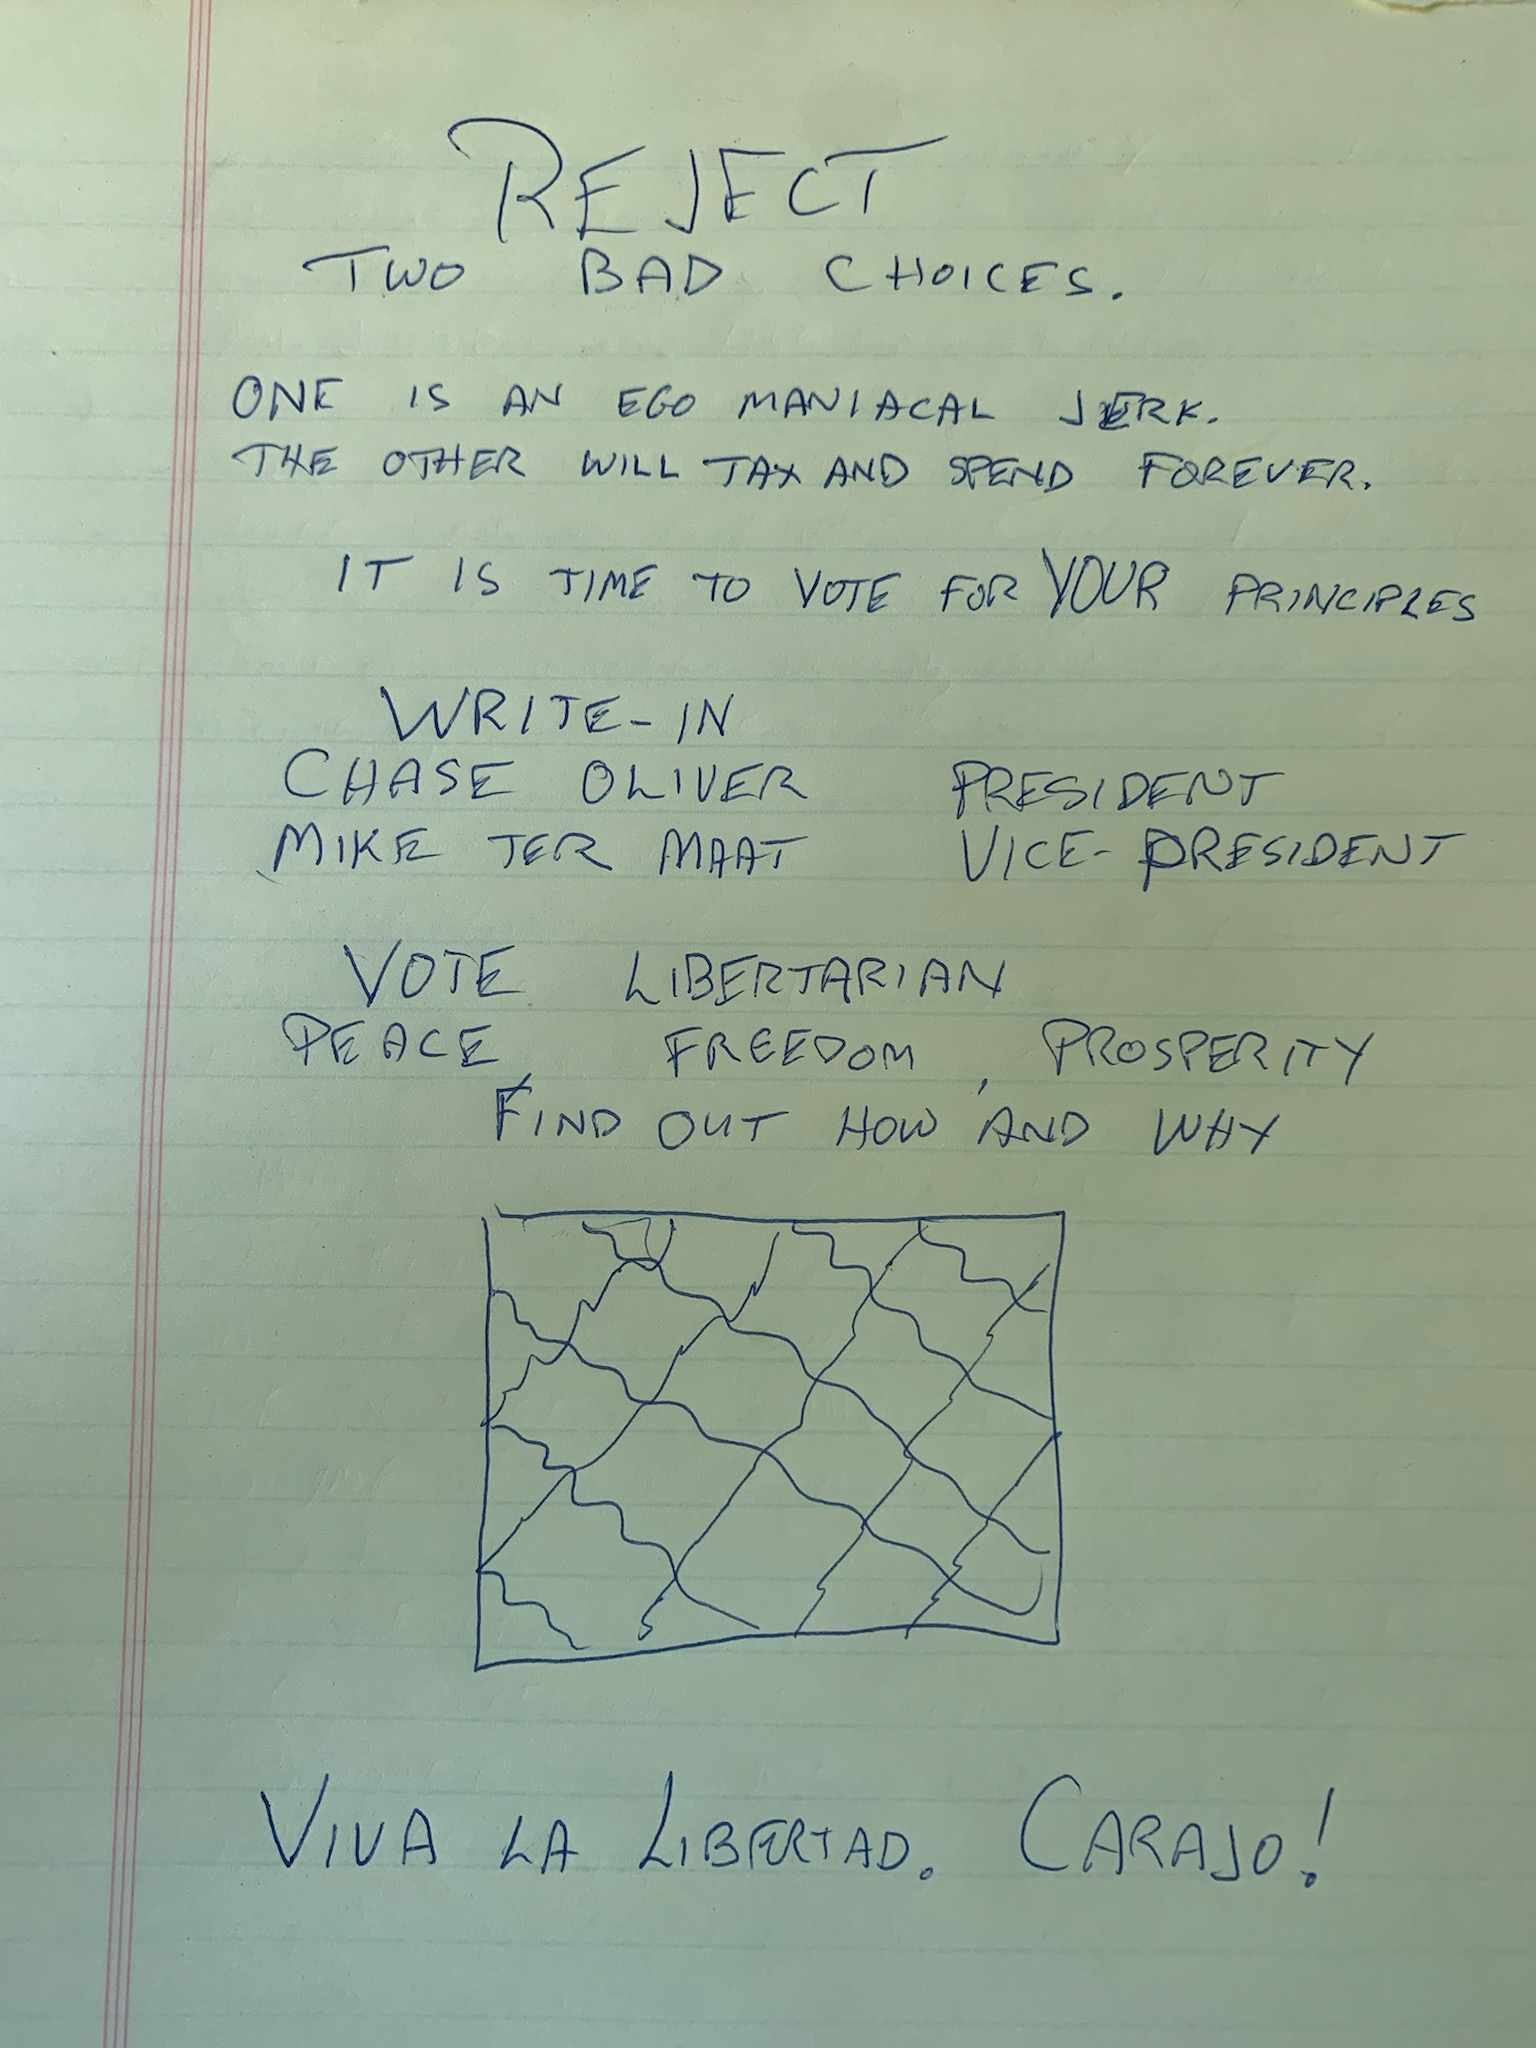 REJECT
TWO BAD CHOICES.
ONE IS AN EGO MANIACAL JERK.
THE OTHER WILL TAX AND SPEND FOREVER.
IT IS TIME TO VOTE FOR YOUR PRINCIPLES
WRITE-IN
CHASE OLIVER PRESIDENT
MIKE TER MAAT VICE-PRESIDENT
VOTE LIBERTARIAN
PEACE, FREEDOM, PROSPERITY
FIND OUT HOW AND WHY
VIVA LA LIBERTAD. CARAJO!